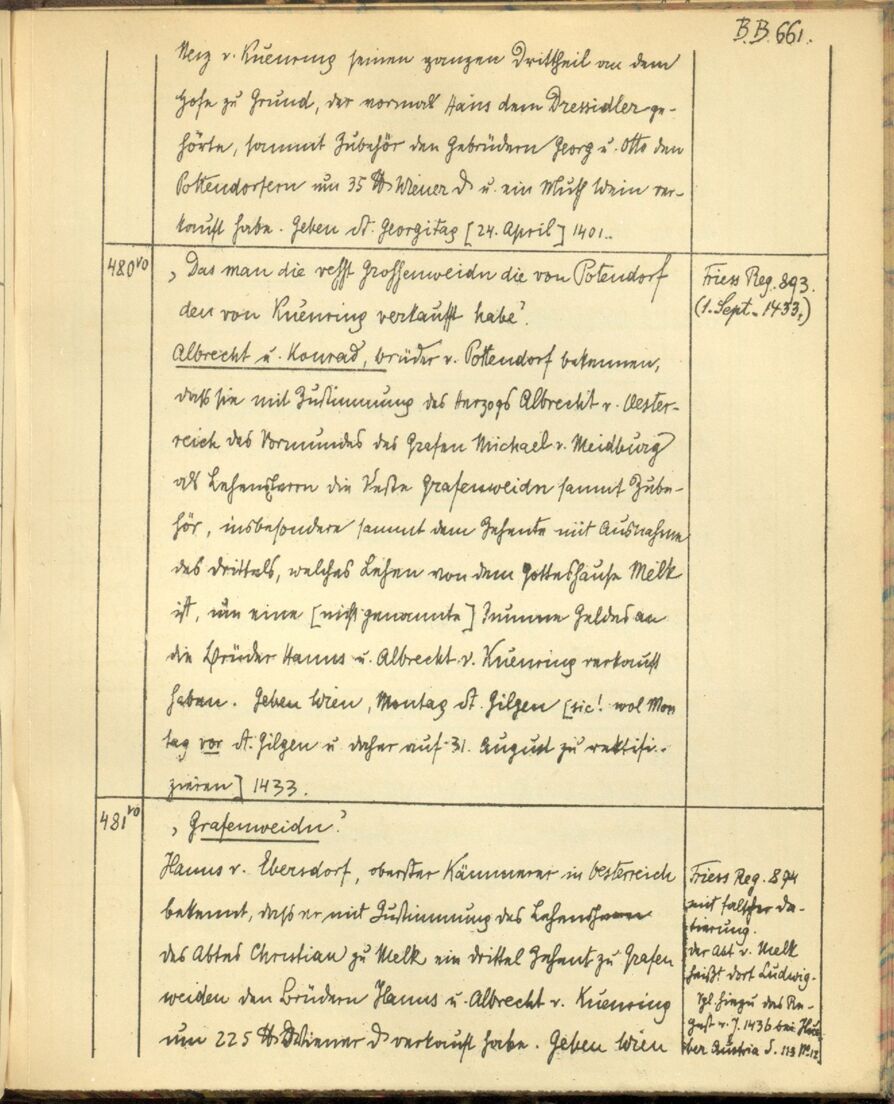 B.B. 661.
v. Kuenring seinen ganzen Drittheil an dem
Hofe zu Grund, der vormals Hans dem Dressidler ge-
hörte, sammt Zubehör den Gebrüdern Georg u. Otto den
Pottendorfern um 35 ℔ Wiener ₰ u. ein Muth Wein ver-
kauft habe. Geben St. Georgitag [24. April] 1401.
480vo
„Das man die vesst Grossenweidn die von Potendorf
den von Kuenring verkaufft habe".
Friess Reg. 893.
(1. Sept. 1433.)
Albrecht u. Konrad, brüder v. Pottendorf bekennen,
dass sie mit Zustimmung des Herzogs Albrecht v. Oester-
reich des Vormundes des Grafen Michael v. Meidburg
als Lehensherrn die Veste Grafenweidn sammt Zube-
hör, insbesondere sammt dem Zehente mit Ausnahme
des drittels, welches Lehen von dem Gotteshause Melk
ist, um eine [nicht genannte] Summe Geldes an
die Brüder Hanns u. Albrecht v. Kuenring verkauft
haben. Geben Wien, Montag St. Gilgen [sic! wol Mon
tag vor St. Gilgen u. daher auf 31. August zu rektifi-
zieren] 1433.
481vo
„Grafenweidn".
Hanns v. Ebersdorf, oberster Kämmerer in Oesterreich
bekennt, dass er mit Zustimmung des Lehensherrn
des Abtes Christian zu Melk ein drittel Zehent zu Grafen
weiden den Brüdern Hanns u. Albrecht v. Kuenring
um 225 ℔ Wiener ₰ verkauft habe. Geben Wien
Friess Reg. 894
mit falscher Da-
tierung.
der Abt v. Melk
heißt dort Ludwig.
Vgl. hiezu das Re-
gest v. J. 1436 bei Hue
ber Austria S. 113 No. 12